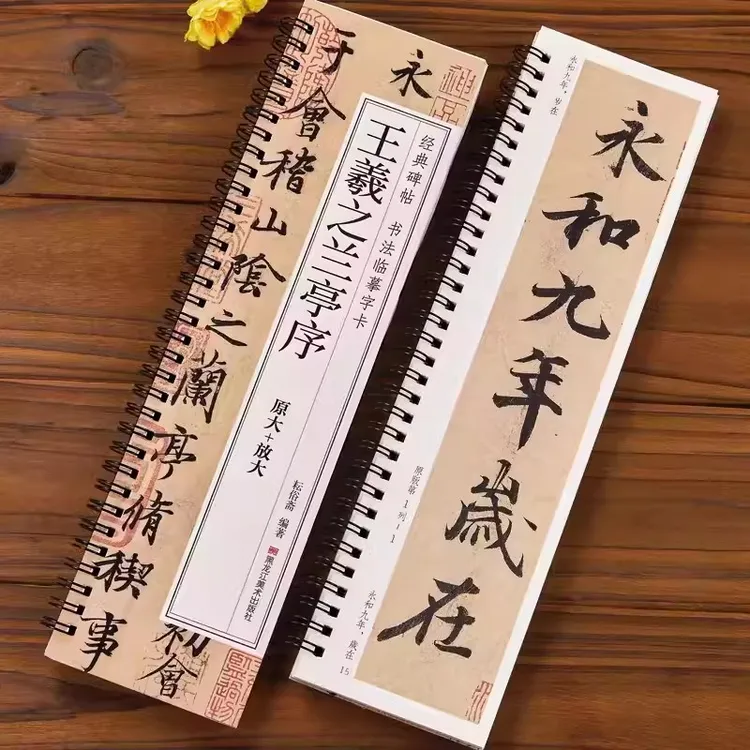 永
于會稽山陰之蘭亭脩禊事
初會
经典碑帖 书法临摹字卡
王羲之兰亭序
原大+放大
耘俗斋 编著
黑龙江美术出版社
永和九年，岁在
永和九年歲在
原版第1列-1
永和九年，歲在
15